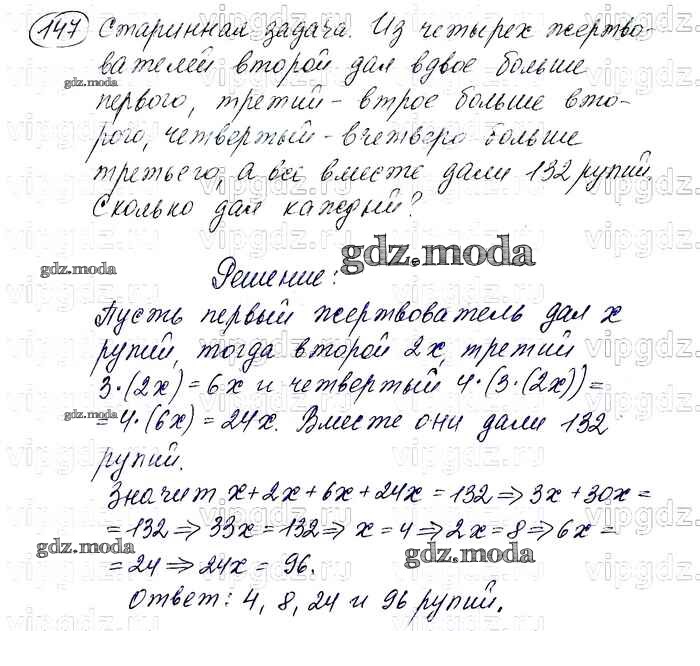 147 Старинная задача. Из четырех жертво-
вателей второй дал вдвое больше
первого, третий - втрое больше вто-
рого, четвертый - вчетверо больше
третьего, а все вместе дали 132 рупий.
Сколько дал каждый?
Решение:
Пусть первый жертвователь дал x
рупий, тогда второй 2x, третий
3·(2x) = 6x и четвертый 4·(3·(2x)) =
= 4·(6x) = 24x. Вместе они дали 132
рупий.
Значит x + 2x + 6x + 24x = 132 ⇒ 3x + 30x =
= 132 ⇒ 33x = 132 ⇒ x = 4 ⇒ 2x = 8 ⇒ 6x =
= 24 ⇒ 24x = 96.
Ответ: 4, 8, 24 и 96 рупий.
gdz.moda
gdz.moda
gdz.moda
gdz.moda
gdz.moda
gdz.moda
vipgdz.ru